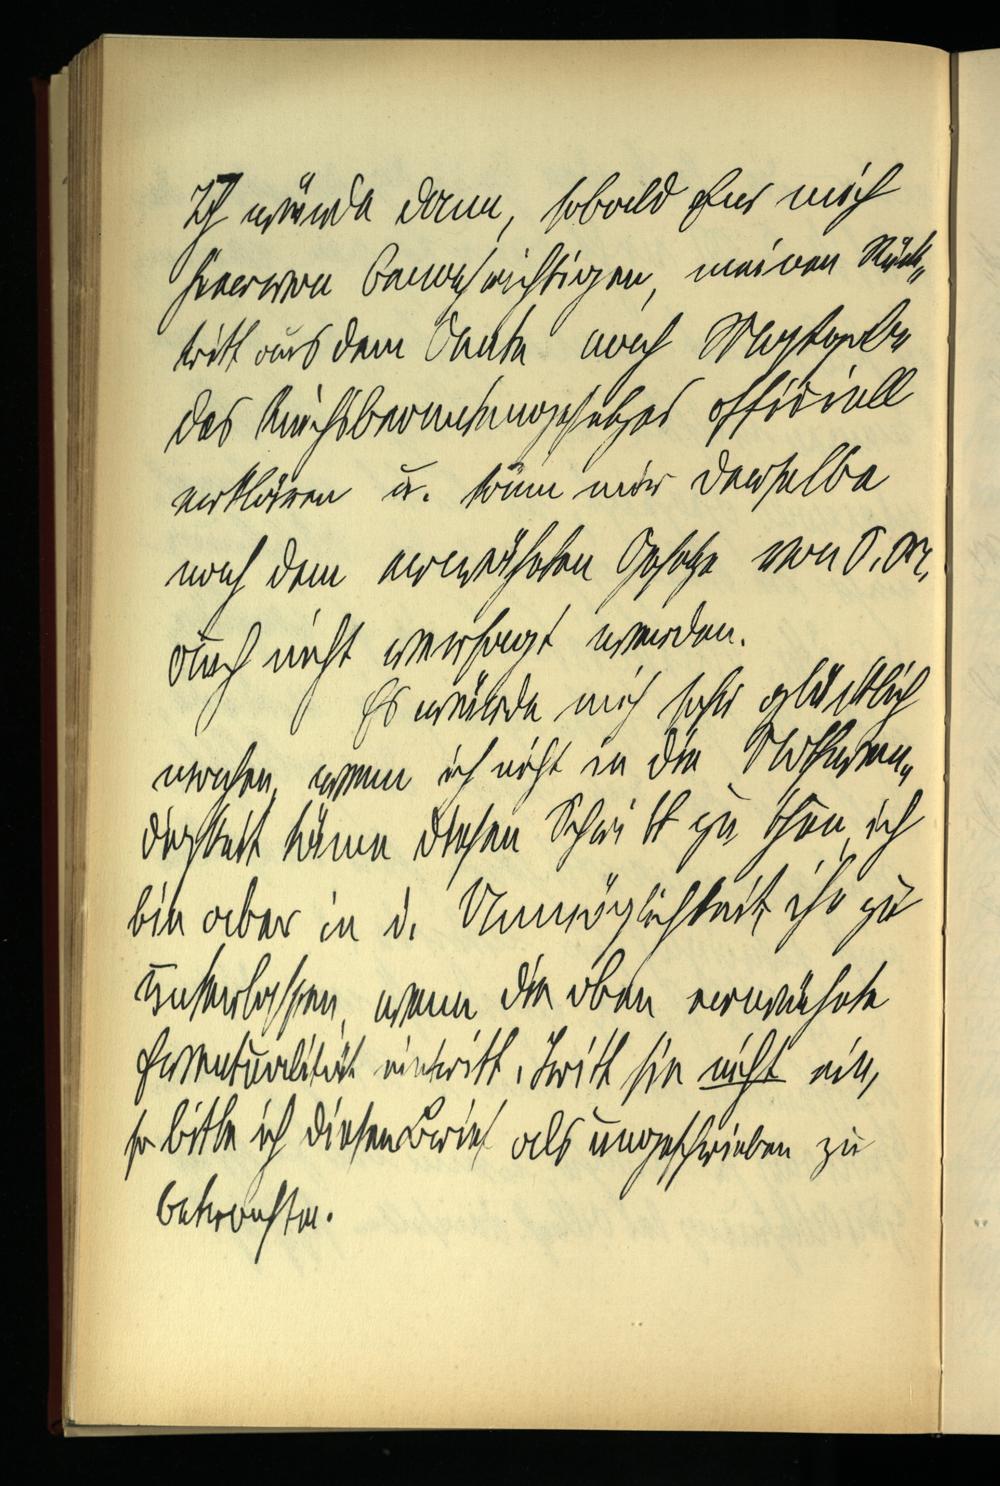 Ich würde dann, sobald Euer mich
hiervon benachrichtigen, meinen Rück„
tritt aus dem Amte nach Maßgabe
des Reichsbeamtengesetzes officiell
erklären u. kann mir derselbe
nach dem erwähnten Gesetze von S. M.
auch nicht versagt werden.
Es würde mich sehr glücklich
machen, wenn ich nicht in die Nothwen„
digkeit käme diesen Schritt zu thun, ich
bin aber in d. Unmöglichkeit ihn zu
unterlassen, wenn die oben erwähnte
Eventualität eintritt. Tritt sie nicht ein,
so bitte ich diesen Brief als ungeschrieben zu
betrachten.